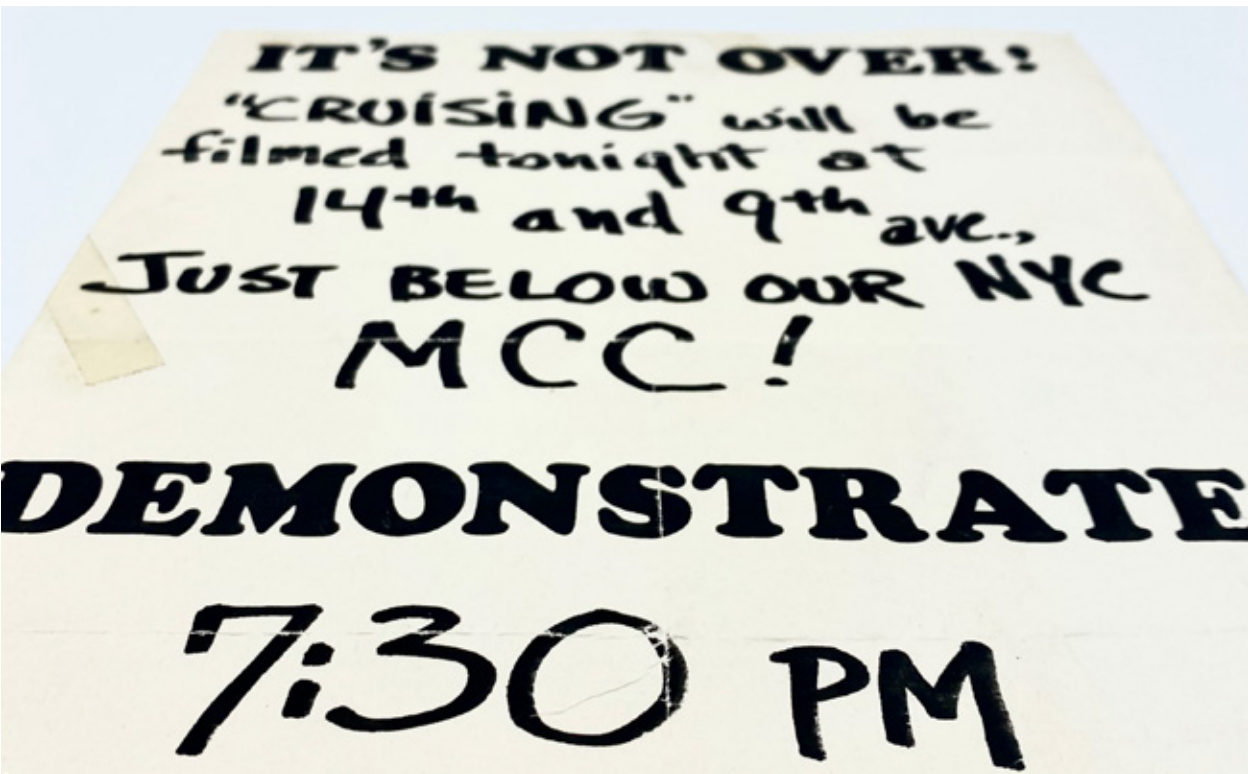 IT'S NOT OVER!
"CRUISING" will be
filmed tonight at
14th and 9th ave.,
JUST BELOW OUR NYC
MCC!
DEMONSTRATE
7:30 PM